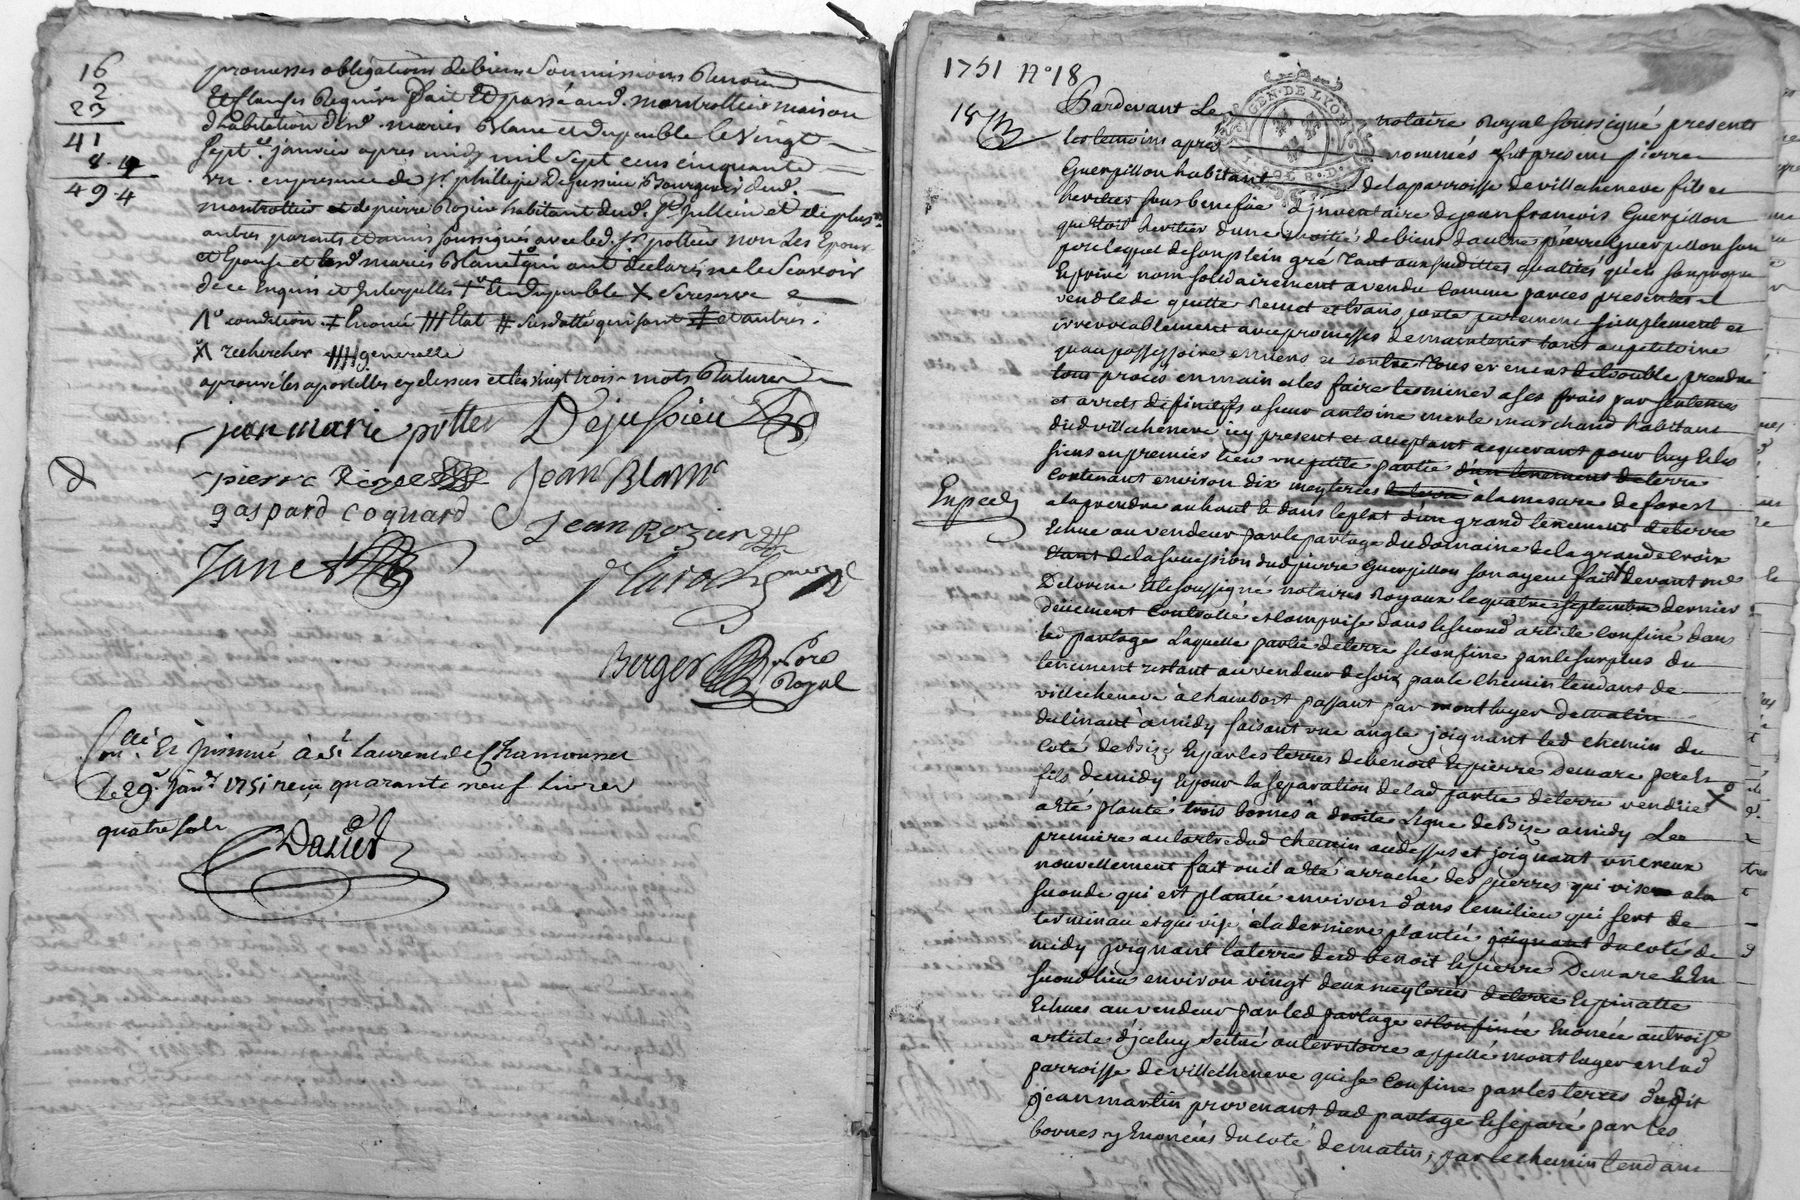 16
2
23
41
8·4
49·4
promesses obligations de biens soumissions Renon
et clauses Requises fait et passé aud. montrottier maison
d'habitation desd. mariés Blanc et Dupeuble le vingt
sept.e janvier apres midy mil sept cens cinquante
un. en presence de Sr. philippe Dejussieu Bourgeois dud.
montrottier et de pierre Rozier habitant dud. St. Jullien et de plus.rs
autres parents et amis soussignés avec led. Sr. pottier non les Epoux
et Epouse et lesd. mariés Blanc qui ont declarés ne le scavoir
de ce Enquis et Interpellés
condition Enoncé Etat susdatté qui sont et autres.
rechercher generalle
aprouvé les apostilles cy dessus et les vingt trois mots Raturés
jean marie pottier Dejussieu
pierre Rozie Jean Blanc
gaspard coquard
Jean Rozier
Janet
Berger no.re Royal
Con.llé Et Insinué à St. Laurent de Chamousset
Le 29.e Jan.er 1751 reçu quarante neuf Livres
quatre sols
1751 N.o 18
18
GEN. DE LYON
Pardevant Le notaire Royal soussigné presents
les temoins apres nommés fut present pierre
Guerpillon habitant de la parroisse de villecheneve fils et
heritier sous benefice d'inventaire de jean francois Guerpillon
qu'etoit heritier d'une moitié de biens d'autre pierre Guerpillon son
pere lequel de son plein gré tant aux susdittes qualités qu'en son propre
Et privé nom solidairement a vendu comme par ces presentes il
vend cede quitte remet et transporte purement simplement et
irrevocablement avec promesses de maintenir tant au petitoire
qu'au possessoire envers et contre tous et en cas de trouble prendre
tous procés en main et les faire terminer a ses frais par sentences
et arrets definitifs a sieur antoine merle marchand habitant
dud villecheneve icy present et acceptant acquerant pour luy Et les
siens en premier lieu une petite partie d'un tenement de terre
Contenant environ dix meyterées à la mesure de forest
Exped.
a la prendre au haut Et dans le plat d'un grand tenement de terre
Echue au vendeur par le partage du domaine de la grande croix
de la succession dud pierre Guerpillon son ayeul fait devant me.
Delorme Et le soussigné notaires Royaux le quatre septembre dernier
deuement Controllé et comprise dans le second article confiné dans
led partage Laquelle partie de terre se confine par le surplus du
tenement restant au vendeur de soir, par le chemin tendant de
villecheneve à chambost passant par montluger de matin
declinant à midy faisant une angle joignant led chemin du
coté de Bize Et par les terres de benoit Et pierre Demare pere Et
fils de midy Et pour la separation de lad partie de terre vendüe
a eté planté trois bornes à droite Ligne de Bize a midy La
premiere au tertre dud chemin au dessus et joignant un creux
nouvellement fait ou il a eté arraché des pierres qui vise a la
seconde qui est plantée environ dans le milieu qui sert de
terminau et qui vise à la derniere plantée joignant du coté de
midy joignant la terre dud benoit Et pierre Demare Et En
second lieu environ vingt deux meyterées de terre Et pinatte
Echues au vendeur par led partage et confinée Enoncée au troise
article d'jceluy scitué au territoire appellé montluger en lad
parroisse de villecheneve qui se confine par les terres dudit
jean martin provenant dud partage Et separé par les
bornes y Enoncées du coté de matin, par le chemin tendant